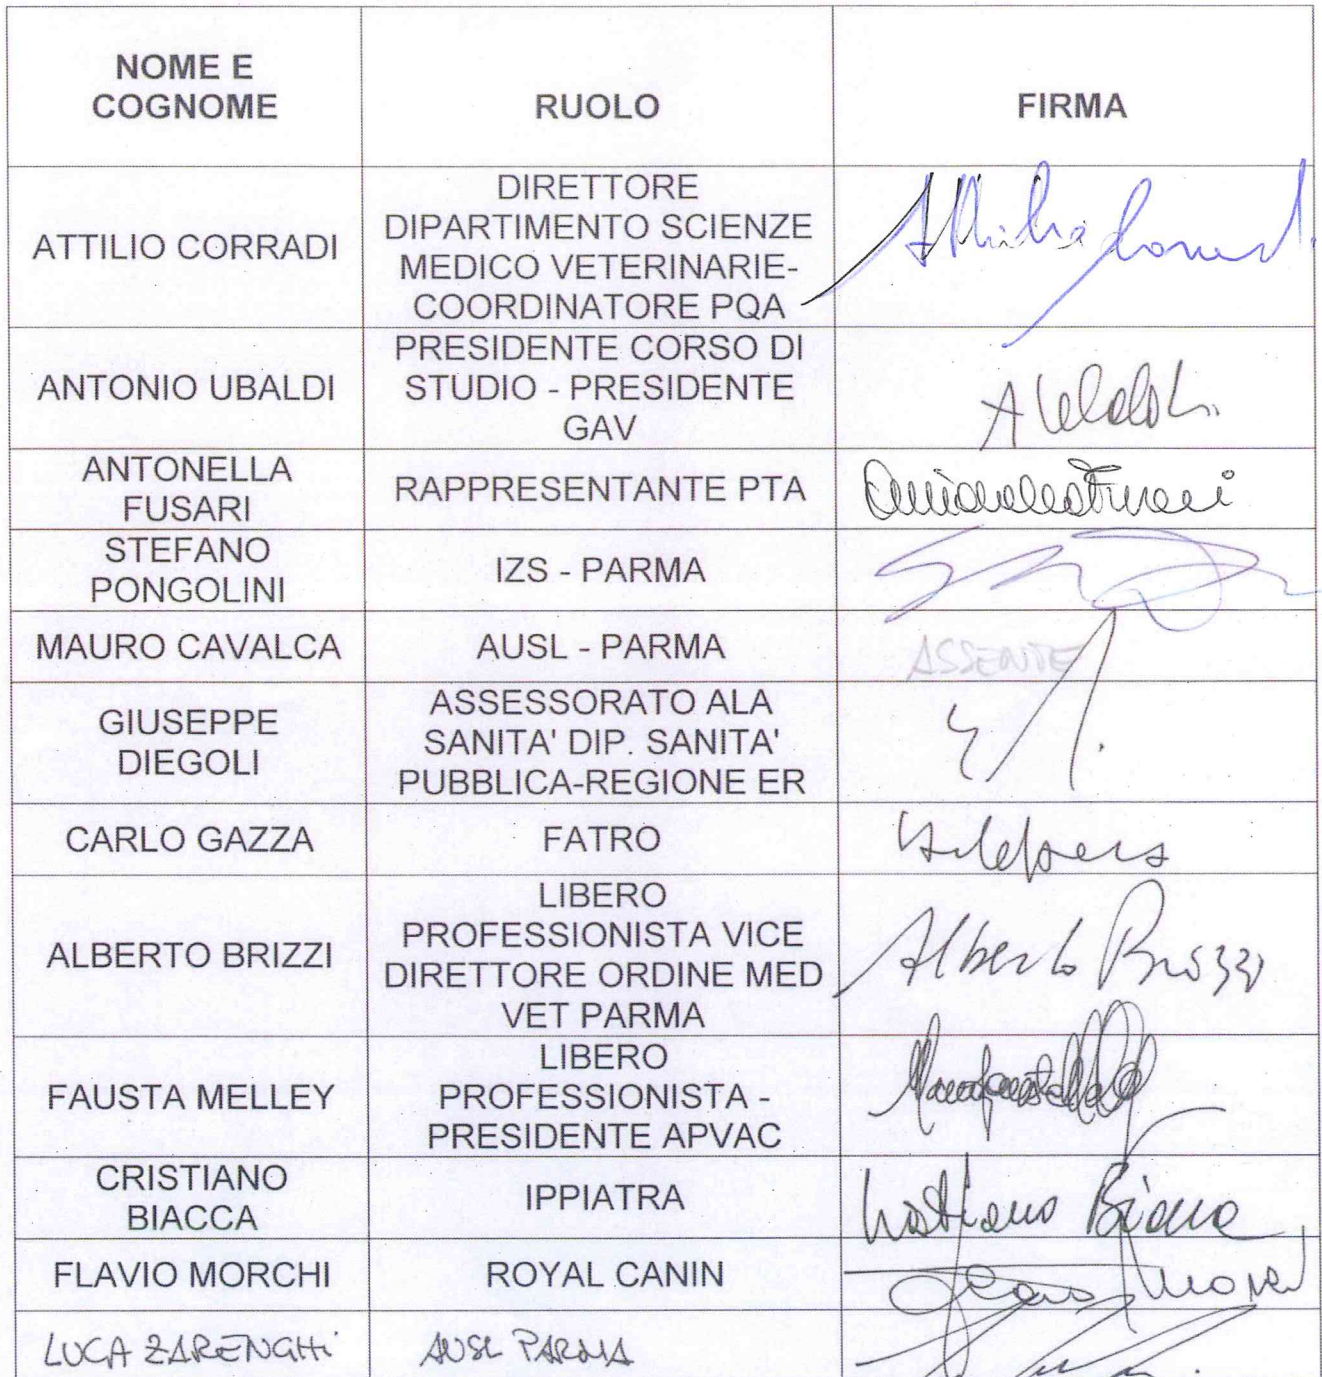 NOME E
COGNOME
RUOLO
FIRMA
ATTILIO CORRADI
DIRETTORE
DIPARTIMENTO SCIENZE
MEDICO VETERINARIE-
COORDINATORE PQA
Attilio Corradi
ANTONIO UBALDI
PRESIDENTE CORSO DI
STUDIO - PRESIDENTE
GAV
A Ubaldi
ANTONELLA
FUSARI
RAPPRESENTANTE PTA
Antonella Fusari
STEFANO
PONGOLINI
IZS - PARMA
MAURO CAVALCA
AUSL - PARMA
ASSENTE
GIUSEPPE
DIEGOLI
ASSESSORATO ALA
SANITA' DIP. SANITA'
PUBBLICA-REGIONE ER
CARLO GAZZA
FATRO
ALBERTO BRIZZI
LIBERO
PROFESSIONISTA VICE
DIRETTORE ORDINE MED
VET PARMA
Alberto Brizzi
FAUSTA MELLEY
LIBERO
PROFESSIONISTA -
PRESIDENTE APVAC
CRISTIANO
BIACCA
IPPIATRA
Cristiano Biacca
FLAVIO MORCHI
ROYAL CANIN
LUCA ZARENGHI
AUSL PARMA